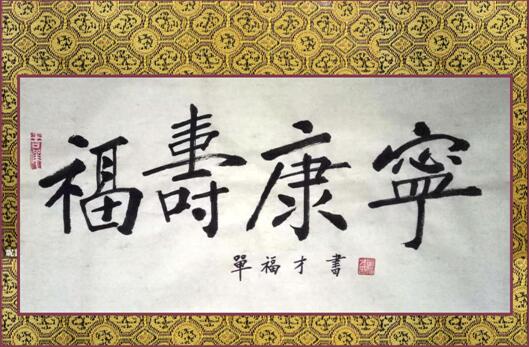 福壽康寧
單福才書